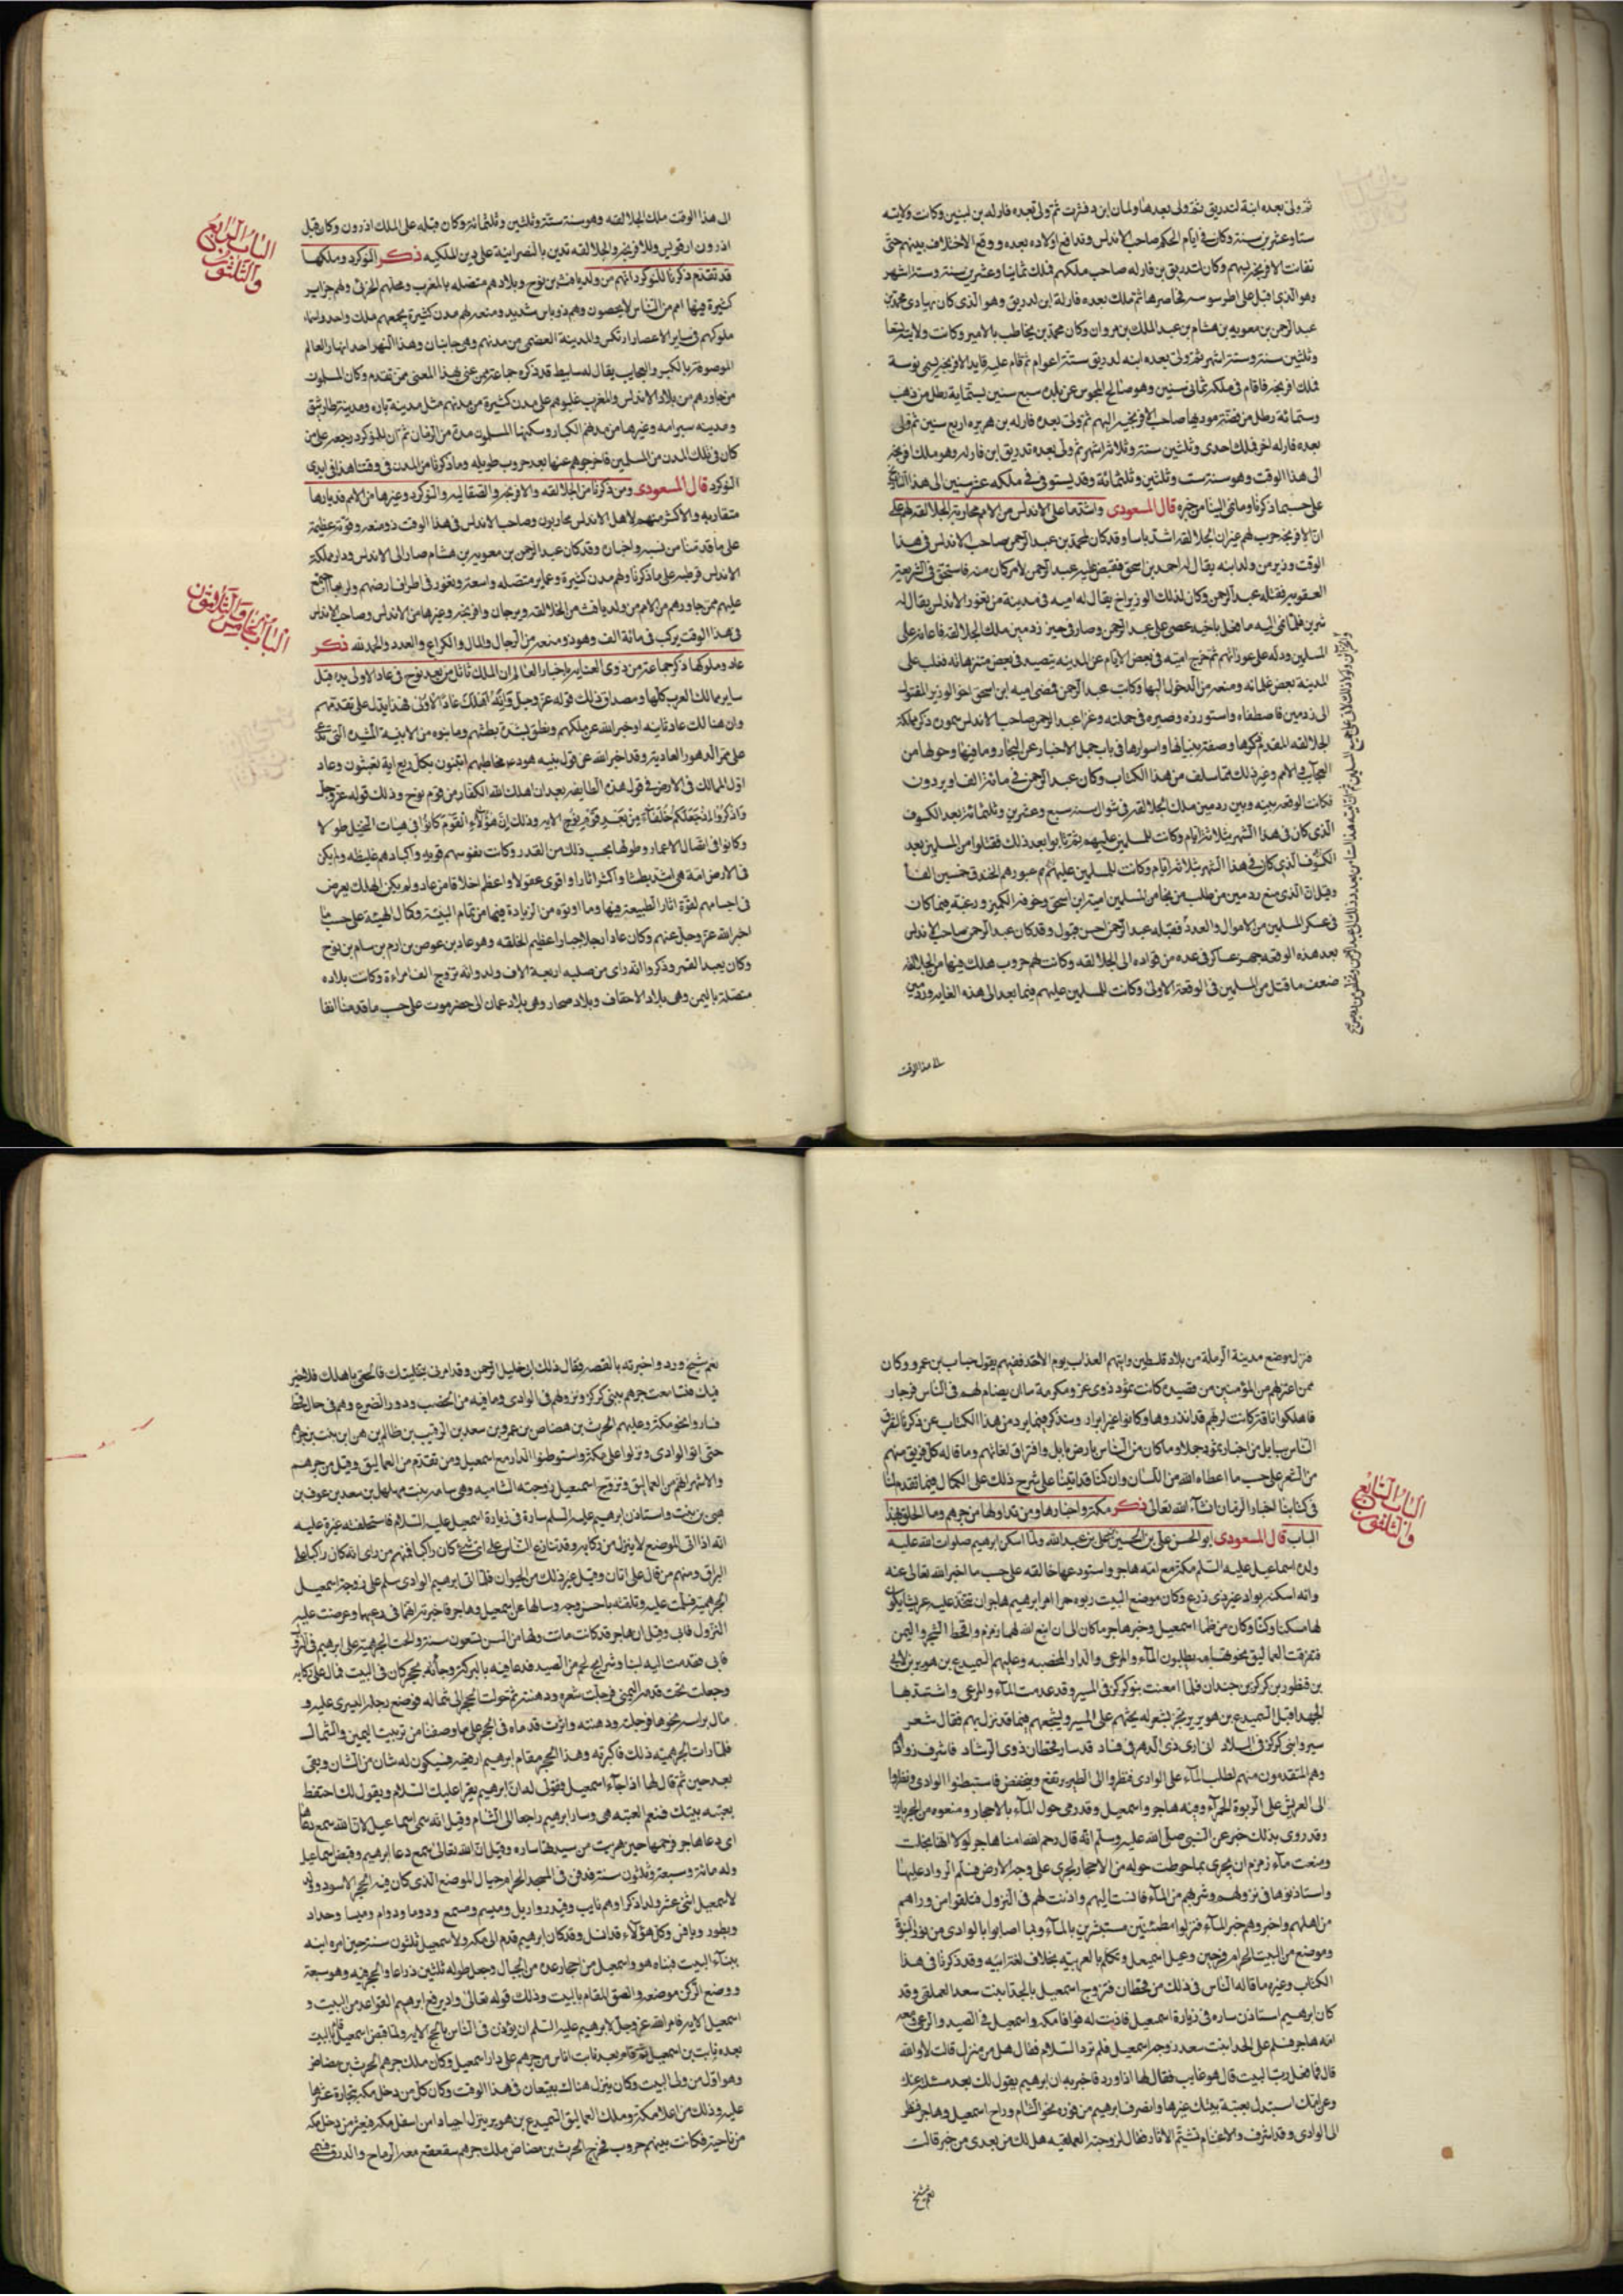 ثم ولى بعده ابنه لذريق ثم ولى بعدها
ستا وعشرين سنة وكان فى ايام الحكم صاحب الاندلس وتدافع اولاده بعده ووقع الاختلاف بينهم حتى
تفانت الافرنجة بهم وكان لذريق بن قارله صاحب ملكهم فملك ثمانيا وعشرين سنة وستة اشهر
وهو الذى اقبل على طرسوسة فحاصرها ثم ملك بعده قارله ابن لذريق وهو الذى كان يهادى محمد بن
عبد الرحمن بن معوية بن هشام بن عبد الملك بن مروان وكان محمد بن يخاطب بالامير وكانت ولايته تسعا
وثلثين سنة وستة اشهر ثم ولى بعده ابنه لذريق ستة اعوام ثم قام عليه قايد الافرنجة يسمى نوسة
فملك افرنجة فاقام فى ملكه ثمانى سنين وهو صالح المجوس عن بلده سبع سنين بستماية رطل من ذهب
وستمائة رطل من فضة يوديها صاحب الافرنجية اليهم ثم ولى بعده قارله بن هريره اربع سنين ثم ولى
بعده قارله اخر فملك احدى وثلثين سنة وثلاثة اشهر ثم ولى بعده تدريق ابن قارله وهو ملك افرنجة
الى هذا الوقت وهو سنة ست وثلثين وثلثمائة وقد يستوفى فى ملكه عشر سنين الى هذا التاريخ
على حسبما ذكرنا ومانمى الينا من خبره قال المسعودى واشد ما على الاندلس من الامم محاربة الجلالقة لهم على
ان الافرنجة حرب لهم غير ان الجلالقه اشد باسا وقد كان لمحمد بن عبد الرحمن صاحب الاندلس فى هذا
الوقت وزير من ولد ابنه يقال له احمد بن اسحق فقبض عليه عبد الرحمن لامر كان منه فاستحق فى الشريعة
العقوبة فقتله عبد الرحمن وكان لذلك الوزير اخ يقال له اميه فى مدينة من ثغور الاندلس يقال له
شرين فلما نمى اليه ما فعل باخيه عصى على عبد الرحمن وصار فى حيز زدمين ملك الجلالقة فاعانه على
المسلمين ودله على عوراتهم ثم خرج اميه فى بعض الايام عن المدينه يتصيد فى بعض متنزهاته فغلب على
المدينة بعض غلمانه ومنعه من الدخول اليها وكاتب عبد الرحمن فمضى اميه ابن اسحق اخو الوزير المقتول
الى زدمين فاصطفاه واستوزره وصيره فى جملته وغزا عبد الرحمن صاحب الاندلس سمون ذكر مملكة
الجلالقه المقدم ذكرها وصفة بنيانها واسوارها فى باب جمل الاخبار عن البحار وما فيها وحولها من
العجايب والامم وغير ذلك مما سلف من هذا الكتاب وكان عبد الرحمن فى مائة الف او يزدون
فكانت الوقعه بينه وبين ردمين ملك الجلالقه فى شوال سنة سبع وعشرين وثلثمائة بعد الكسوف
الذى كان فى هذا الشهر بثلاثة ايام وكانت للمسلمين عليهم ثم ثابوا بعد ذلك فقتلوا من المسلمين بعد
الكسوف الذى كان فى هذا الشهر بثلاثة ايام وكانت للمسلمين عليهم ثم بعبورهم الخندق خمسين الفا
وقيل ان الذى منع ردمين من طلب من نجا من المسلمين امية ابن اسحق وخوفه الكمين ورغبه فيما كان
فى عسكر المسلمين من الاموال والعدد فقبله عبد الرحمن احسن قبول وقد كان عبد الرحمن صاحب الاندلس
بعد هذه الوقعة جهز عساكر فى عده من قواده الى الجلالقه وكانت لهم حروب هلك فيها من الجلالقه
ضعف ما قتل من المسلمين فى الوقعة الاولى وكانت للمسلمين عليهم فيما بعد الى هذه الغاية وردمين
الى هذا الوقت
الى هذا الوقت ملك الجلالقه وهو سنة ستة وثلثين وثلثمائة وكان قبله على الملك اذرون وكان قبل
اذرون ارفويس وللافرنجة والجلالقه تدين بالنصرانية على دين الملكيه ذكر النوكرد وملكها
الباب الرابع
والثلثون
قد تقدم ذكرنا للنوكرد انهم من ولد يافث بن نوح وبلادهم متصله بالمغرب ومحلهم الجربى ولهم جزاير
كثيرة فيها امم من الناس لا يحصون وهم ذو باس شديد ومنعه ولهم مدن كثيرة يجمعهم ملك واحد واسماء
ملوكهم فى ساير الاعصار ارنكس والمدينة العضمى من مدنهم وهى جانبان وهذا النهر احد انهار العالم
الموصوفة بالكبر والعجايب يقال له سابيط قد ذكره جماعة ممن عنى بهذا المعنى ممن تقدم وكان المسلمون
من جاورهم من بلاد الاندلس والمغرب غلبوهم على مدن كثيرة من مدنهم مثل مدينة باره ومدينة طارنثو
ومدينه سبرامه وغيرها من مدنهم الكبار وسكنها المسلمون مدة من الزمان ثم ان النوكرد رجعوا على من
كان فى تلك المدن من المسلمين فاخرجوهم عنها بعد حروب طويله وما ذكرنا من المدن فى وقتنا هذا فى ايدى
النوكرد قال المسعودى ومن ذكرنا من الجلالقه والافرنجة والصقالبه والنوكرد وغيرها من الامم فديارها
متقاربة والاكثر منهم لاهل الاندلس محاربون وصاحب الاندلس فى هذا الوقت ذو منعه وقوة عظيمة
على ما قدمنا من نسبه واخباره وقد كان عبد الرحمن بن معوية بن هشام صار الى الاندلس ودار مملكة
الاندلس قرطبه على ما ذكرنا ولهم مدن كثيرة وعماير متصله واسعة وثغور فى اطراف ارضهم وربما اجتمع
عليهم ممن جاورهم من الامم من ولد يافث من الجلالقه وبرجان وافرنجه وغيرها من الاندلس وصاحب الاندلس
فى هذا الوقت يركب فى مائة الف وهو ذو منعه من الرجال والمال والكراع والعدد والحمد لله ذكر
الباب الخامس والثلاثون
عاد وملوكها ذكر جماعة من ذوى العناية باخبار العالم ان الملك تاثل من بعد نوح فى عاد الاولى قبل
ساير ممالك العرب كلها ومصداق ذلك قوله عز وجل وانه اهلك عادا الاولى فهذا يدل على تقدمهم
وان هنالك عاد ثانيه اوخبر الله عن ملكهم ونطق بشدة بطشهم وما بنوه من الابنية المشيده التى تدعى
على ممر الدهور العادية وقد اخبر الله عن قول نبيه هود مخاطبهم اتبنون بكل ريع اية تعبثون وعاد
اول الممالك فى الارض فى قول هذه الطايفه بعد ان اهلك الله الكفار من قوم نوح وذلك قوله عز وجل
واذكروا اذ جعلكم خلفاء من بعد قوم نوح الايه وذلك ان هؤلاء القوم كانوا فى هيات النخيل طولا
وكانوا فى اتصال الاعمار وطولها بحسب ذلك من القدر وكانت نفوسهم قويه واكبادهم غليظه ولم يكن
فى الارض امة هى اشد بطشا واكثر اثارا واقوى عقولا واعظم اخلاقا من عاد ولم يكن الهلك يعرض
فى اجسامهم لقوة اثار الطبيعة فيها وما اوتوه من الزيادة فيها من تمام البنية وكمال الهيئة على حسب ما
اخبر الله عز وجل عنهم وكان عاد رجلا جبارا عظيم الخلقه وهو عاد بن عوص بن ارم بن سام بن نوح
وكان يعبد القمر وذكروا انه راى من صلبه اربعة الاف ولد وانه تزوج الف امراة وكانت بلاده
متصلة باليمن وهى بلاد الاحقاف وبلاد صحار وهى بلاد عمان الى حضرموت على حسب ما قدمنا انفا
فنزل موضع مدينة الرملة من بلاد فلسطين واتيهم العذاب يوم الاحد ففيهم يقول حباب بن عمرو وكان
ممن اعتزلهم من المؤمنين من قصيده كانت ثمود ذوى عز ومكرمة ما ان يضام لهم فى الناس من جار
فاهلكوا ناقة كانت لربهم قد انذروها وكانوا غير ابرار وسنذكر فيما يرد من هذا الكتاب عن ذكرنا تفرق
الناس ببابل من اخبار ثمود جملا وما كان من الناس بارض بابل وافتراق لغاتهم وما قاله كل فريق منهم
من الشعر على حسب ما اعطاه الله من اللسان وان كنا قد اتينا على شرح ذلك على الكمال فيما تقدم لنا
فى كتابنا اخبار الزمان انشاء الله تعالى ذكر مكة واخبارها ومن تداولها من جرهم وما الحق بهذا
الباب السابع
والثلثون
الباب قال المسعودى ابو الحسن على بن الحسين بن على بن عبد الله ولما اسكن ابرهيم صلوات الله عليه
ولده اسماعيل عليه السلم مكة مع امته هاجر واستودعها خالقه على حسب ما اخبر الله تعالى عنه
وانه اسكنه بواد غير ذى زرع وكان موضع البيت ربوه حمرا امر ابرهيم هاجر ان تتخذ عليه عريشا يكون
لها مسكنا وكنا وكان من ظما اسمعيل وخبر هاجر ما كان الى ان انبع الله لهما زمزم واقحط الشجر واليمن
فتفرقت العماليق بطلبون الماء والمرعى والدار المخصبه وعليهم السميدع بن هوبر بن لاى
بن قطور بن كركر بن حيدان فلما امعنت بنو كركر فى المسير وقد عدمت الماء والمرعى واشتد بها
الجهد اقبل السميدع بن هوبر يرتجز بشعر له يحثهم على المسير ويشجعهم فيما قد نزل بهم فقال شعر
سيروا بنى كركر فى البلاد انى ارى ذى الدهر فى فساد قد سار قحطان ذوى الرشاد فاشرف روادهم
وهم المتقدمون منهم لطلب الماء على الوادى فنظروا الى الطير يرتفع ويخفض فاستبطنوا الوادى ونظروا
الى العريش على الربوة الحمراء وفيه هاجر واسمعيل وقد زمى حول الماء بالاحجار ومنعوه من الجريان
وقد روى بذلك خبر عن النبى صلى الله عليه وسلم انه قال رحم الله امنا هاجر لولا انها بخلت
ومنعت ماء زمزم ان يجرى بما حوطت حوله من الاحجار لجرى على وجه الارض فسلم الرواد عليها
واستاذنوها فى نزولهم وشربهم من الماء فانست اليهم واذنت لهم فى النزول فتلقوا من وراهم
من اهلهم واخبروهم خبر الماء فنزلوا مطمئنين مستبشرين بالماء وبما اصابوا بالوادى من نور النبوة
وموضع من البيت الحرام فرحين اسمعيل وتكلم بالعربيه بخلاف لغة ابيه وقد ذكرنا فى هذا
الكتاب وغيره ما قاله الناس فى ذلك من قحطان فتزوج اسمعيل بالجدا بنت سعد العملقى وقد
كان ابرهيم استاذن ساره فى زيارة اسمعيل فاذنت له فوافا مكه واسمعيل فى الصيد والرعى ومعه
امه هاجر فسلم على الجدا بنت سعد زوجة اسمعيل فلم ترد السلام فقال هل من منزل قالت لا والله
قال فما فعل رب البيت قال هو غايب فقال لها اذا ورد فاخبريه ان ابرهيم يقول لك بعد مسئلة عنك
وعن امك استبدل بعتبة بيتك غيرها وانصرف ابرهيم من فوره نحو الشام وراح اسمعيل وهاجر فنظر
الى الوادى وقد اشرف والاغنام تشتم الاثار فقال لزوجته العملقيه هل لك من بعدى من خبر قالت
نعم شيخ
نعم شيخ ورد واخبرته بالقصه فقال ذلك ابى خليل الرحمن وقد امرنى بتخليتك فالحقى باهلك فلا خير
فيك فتسامعت جرهم ببنى كركر ونزولهم فى الوادى وما فيه من الخصب ودور الضرع وهم فى حال قحط
فساروا نحو مكة وعليهم الحرث بن مضاض بن عمرو بن سعد بن الرقيب بن ظالم بن هن ابن نبت بن جرهم
حتى اتوا الوادى ونزلوا على مكة واستوطنوا الدار مع اسمعيل ومن تقدم من العماليق وقيل من جرهم
والاشهر انهم من العماليق وتزوج اسمعيل زوجته الثانيه وهى سامه بنت مهلهل بن سعد بن عوف بن
هى بن نبت واستاذن ابرهيم عليه السلم سارة فى زيارة اسمعيل عليه السلام فاستحلفته غيرة عليه
انه اذا اتى الموضع لا ينزل من ركابه وقد تنازع الناس على اى شئ كان راكبا فمنهم من راى انه كان راكبا على
البراق ومنهم من قال على اتان وقيل غير ذلك من الحيوان فلما اتى ابرهيم الوادى سلم على زوجة اسمعيل
الجرهمية فسلمت عليه وتلقته باحسن وجه وسالها عن اسمعيل وهاجر فاخبرته انهما فى رعيهما وعرضت عليه
النزول فابى وقيل ان هاجر قد كانت ماتت ولها من السن تسعون سنة والحت الجرهمية على ابرهيم فى النزول
فابى فقدمت اليه لبنا وشرايح لحم من الصيد فدعا فيه بالبركة وجأته بحجر كان فى البيت فمال على ركابه
وجعلت تحت قدمه اليمنى فرجلت شعره ودهنته ثم حولت الحجر الى شماله فوضع رجله اليسرى عليه و
مال براسه نحوها فرجلته ودهنته واثرت قدماه فى الحجر على ما وصفنا من ترتيب اليمين والشمال
فلما رات الجرهمية ذلك اكبرته وهذا الحجر مقام ابرهيم ارفعيه فسيكون له شان من الشان ونبى
بعد حين ثم قال لها اذا جاء اسمعيل فقولى له ان ابرهيم يقرا عليك السلام ويقول لك احتفظ
بعتبه بيتك فنعم العتبه هى وسار ابرهيم راجعا الى الشام وقيل انه سمى اسماعيل لان الله سمع دعا
اى دعا هاجر فرحمها حين هربت من سيدتها ساره وقيل ان الله تعالى سمع دعا ابرهيم وقبض اسماعيل
وله مائة وسبعة وثلثون سنة فدفن فى المسجد الحرام حيال الموضع الذى كان فيه الحجر الاسود وولد
لاسمعيل اثنى عشر ولدا ذكرا وهم نابت وقيدر واربل وميسم ومسمع ودوما ودوام وميسا وحداد
ويطور ونافس وكل هؤلاء قد انسل وقد كان ابرهيم قدم الى مكه ولاسمعيل ثلثون سنة حين امره
ببناء البيت فبناه هو واسمعيل من احجار عده من الجبال وجعل طوله ثلثين ذراعا والحجر فيه وهو سبعة
ووضع الركن موضعه والصق المقام بالبيت وذلك قوله تعالى واذ يرفع ابرهيم القواعد من البيت و
اسمعيل الايه فامر الله عز وجل لابرهيم عليه السلم ان يؤذن فى الناس بالحج الايه ولما قبض اسمعيل قام بالبيت
بعده نابت بن اسمعيل ثم قام بعد نابت اناس من جرهم على دار اسمعيل وكان ملك جرهم الحرث بن مضاض
وهو اول من ولى البيت وكان ينزل هناك بقيقعان فى هذا الوقت وكان كل من دخل مكه بتجارة عشرها
عليه وذلك من اعلا مكة وملك العماليق السميدع بن هوبر ينزل اجيادا من اسفل مكه فيعشر من دخل مكه
من ناحيته فكانت بينهم حروب فخرج الحرث بن مضاض ملك جرهم يتقعقع معه الرماح والدرق فسمى